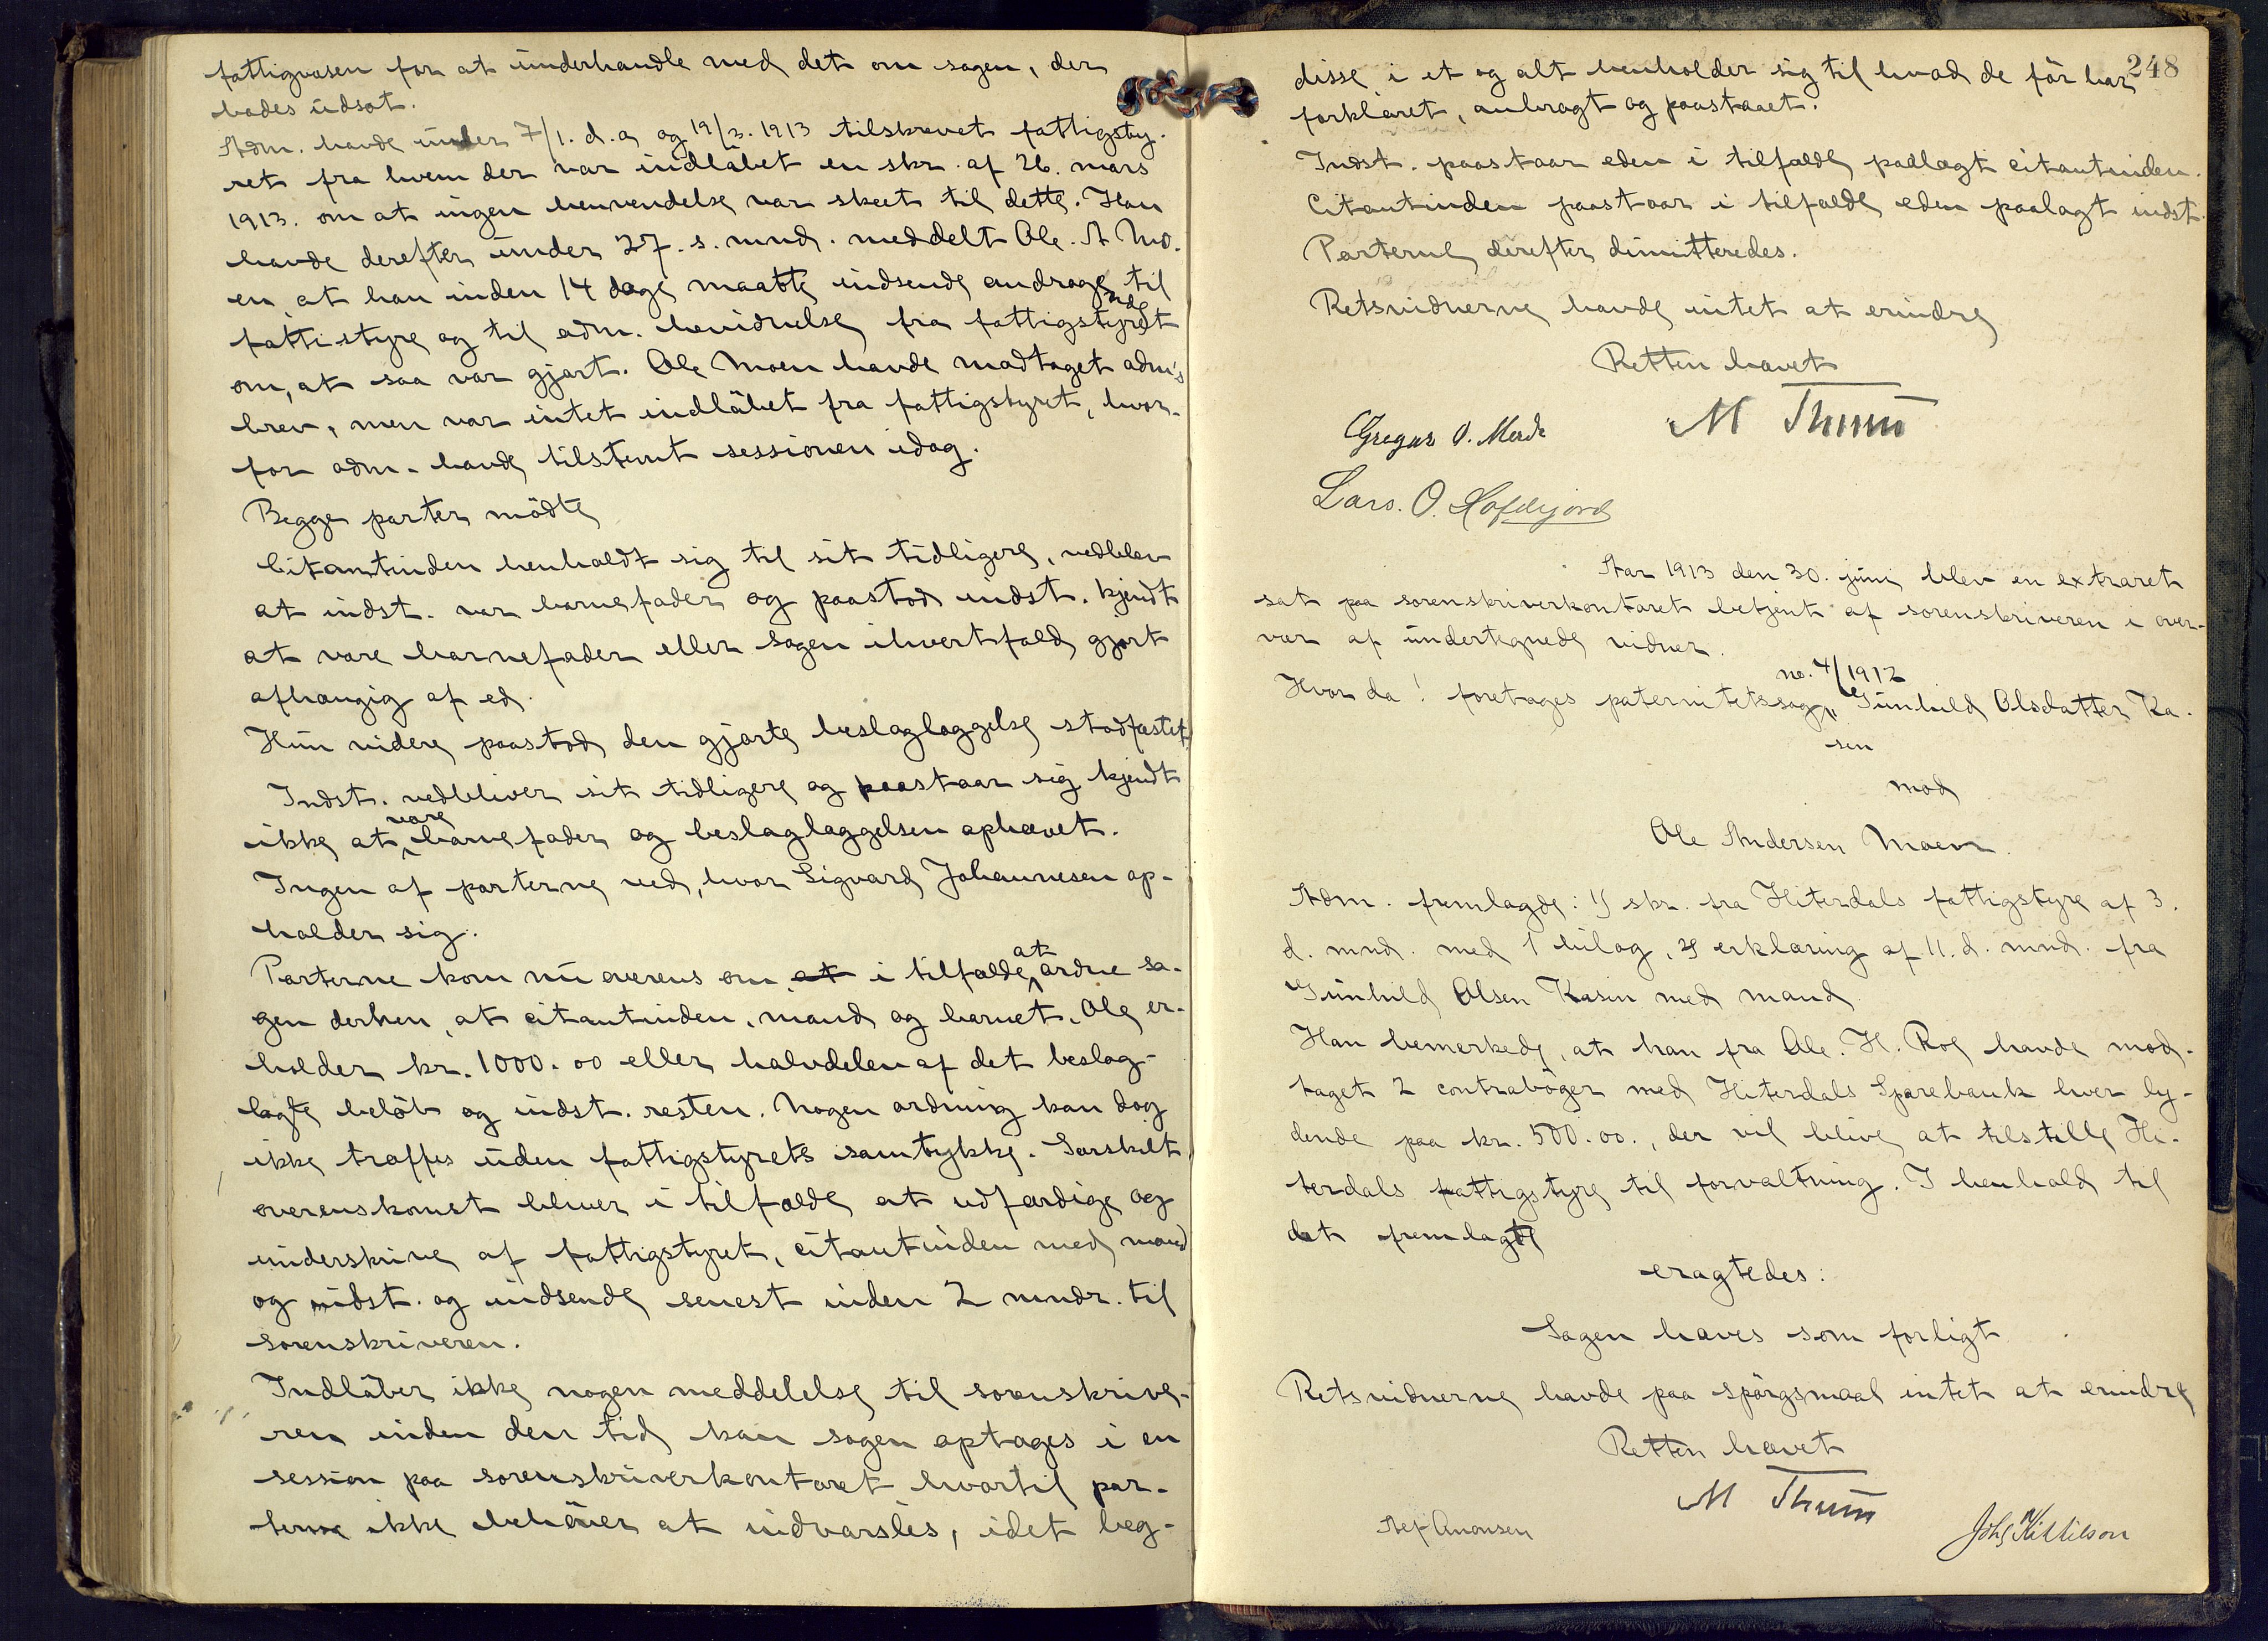 fattigvæsen for at underhandle med det om sagen, der
bades udsat.
Adm. havde under 7/1. d.a og 19/3. 1913 tilskrevet fattigsty-
ret fra hvem der var indløbet en skr. af 26. mars
1913. om at ingen henvendelse var skeet til dette. Han
havde derefter under 27. s. mnd. meddelt Ole. A Mo-
en, at han inden 14 dage maatte indsende andragende til
fattistyre og til adm. bevidnelse fra fattigstyret
om, at saa var gjort. Ole Moen havde modtaget adm's
brev, men var intet indløbet fra fattigstyret, hvor-
for adm. havde tilstemt sessionen idag.
Begge parter mødte
Citantinden henholdt sig til sit tidligere, vedblev
at indst. var barnefader og paastod indst. kjendt
at være barnefader eller sagen ihvertfald gjort
afhængig af ed.
Hun videre paastod den gjorte beslaglæggelse stadfæstet
Indst. vedbliver sit tidligere og paastaar sig kjendt
ikke at være barnefader og beslaglæggelsen ophævet.
Ingen af parterne ved, hvor Sigvard Johannesen op-
holder sig.
Parterne kom nu overens om at i tilfælde at ordne sa-
gen derhen, at citantinden, mand og barnet, Ole er-
holder kr. 1000.00 eller halvdelen af det beslag-
lagte beløb og indst. resten. Nogen ordning kan dog
ikke træffes uden fattigstyrets samtykke. Særskilt
overenskomst bliver i tilfælde at udfærdige og
underskrive af fattigstyret, citantinden med mand
og indst. og indsende senest inden 2 mndr. til
sorenskriveren.
Indløber ikke nogen meddelelse til sorenskrive-
ren inden den tid kan sagen optages i en
session paa sorenskriverkontoret hvortil par-
terne ikke behøver at indvarsles, idet beg-
248
disse i et og alt henholder sig til hvad de før har
forklaret, anbragt og paastaaet.
Indst. paastaar eden i tilfælde paalagt citantinden.
Citantinden paastaar i tilfælde eden paalagt indst.
Parterne derefter dimitteredes.
Retsvidnerne havde intet at erindre
Retten hævet
M Thurn
Gregar O.
Lars. O.
Aar 1913 den 30. juni blev en extraret
sat paa sorenskriverkontoret betjent af sorenskriveren i over-
vær af undertegnede vidner.
Hvor da! foretages paternitetssag no. 4/1912 Gunhild Olsdatter Ka-
sen
mod
Ole Andersen Moen.
Adm. fremlagde: 1) skr. fra Hiterdals fattigstyre af 3.
d. mnd. med 1 bilag, 2) erklæring af 11. d. mnd. fra
Gunhild Olsen Kasin med mand
Han bemerkede, at han fra Ole. H. Roe havde mod-
taget 2 contrabøger med Hiterdals Sparebank hver ly-
dende paa kr. 500.00., der vil blive at tilstille Hi-
terdals fattigstyre til forvaltning. I henhold til
det fremlagte
eragtedes:
Sagen hæves som forligt
Retsvidnerne havde paa spørgsmaal intet at erindre
Retten hævet
M Thurn
Aronsen
Johs N Kittilson